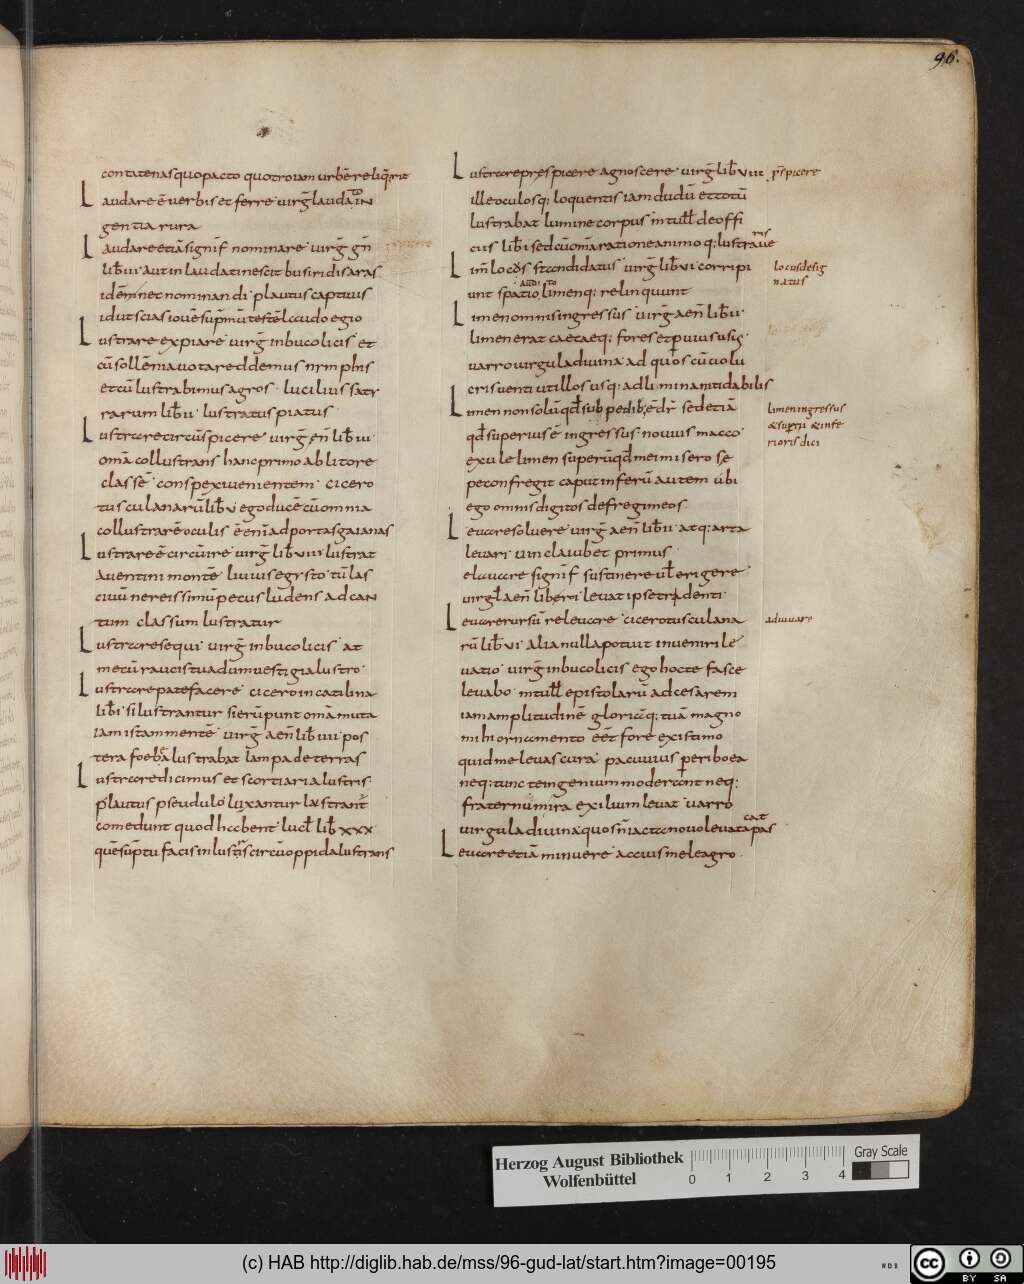 96.
contatenas quo pacto quo troiam urbē reliq̄rit
Laudare ē verbis et ferre virḡ laudato IN
gentia rura
Laudare etiā signif nominare virḡ gn̄
lib̄ III aut inlaudati nescit busiridis aras
idēm et nominandi plautus captiuis
id ut scias iouē suprēmū testē laudo egio
Lustrare expiare virḡ in bucolicis et
cū sollēnia uota reddemus nymphis
et cū lustrabimus agros lucilius saty
rarum lib̄ II lustratus piatus
Lustrare circūspicere virḡ ēn̄ lib̄ III
omā collustrans hanc primo ab litore
classē conspexi uenientem cicero
tusculanarū lib̄ V ego ducē cū omnia
collustrarē oculis ē enī ad portas gaianas
Lustrare ē circūire virḡ lib̄ VIII lustrat
auentini montē liuius egysto tū las
ciuū nerei simū pecus ludens ad can
tum classum lustratur
Lustrare sequi virḡ in bucolicis at
mecū raucis tua dum uestigia lustro
Lustrare patefacere cicero in catilina
lib̄ I si lustrantur si erūpunt omā muta
iam istam mentē virḡ aen̄ lib̄ IIII pos
tera foeba lustrabat lampade terras
Lustrare dicimus et scortiari a lustris
plautus pseudulo luxantur lustrant
comedunt quod habent lucl̄ lib̄ xxx
quē sūptū facis in lustris circū oppida lustrans
Lustrare prespicere agnoscere virḡ lib̄ VIII
ille oculosq; loquentis iamdudū et totū
lustrabat lumine corpus m̄ tull̄ de offi
ciis lib̄ I sed cū om̄a ratione animoq; lustraue
ris
Lim̄ locōs secandidatus virḡ lib̄ VI corripi
unt spatio limenq; relinquunt
Limen omnis ingressus virḡ aen̄ lib̄ II
limen erat caecaeq; fores et peruius usus
uarro uirgula diuina ad quos cū uolu
eris uenti ut illos usq; ad liminan tidabilis
Limen non solū qd̄ sub pedib; ē dr̄ sed etiā
qd̄ superius ē ingressus nouius macco
exule limen superū qd̄ mei misero se
pe confregit caput inferū autem ubi
ego omnis digitos defregi meos
Leuare soluere virḡ aen̄ lib̄ II atq; arta
leuari uincla iubet primus
eleuare signif sustinere ul̄ erigere
virgl̄ aen̄ liberi leuat ipse tridenti
Leuare rursū releuare cicero tusculana
rū lib̄ VI alia nulla potuit inueniri le
uatio virḡ in bucolicis ego hocte fasce
leuabo m tull̄ epistolarū ad cesarem
iam amplitudinē gloriāq; tuā magno
mihi ornamento eēt fore existimo
quid me leuas cura pacuuius periboea
neq; tunc te ingenium moderant neq;
fraternū mira exilium leuat uarro
virgula diuina quos nı̄ actae nouo leuata pas
cat
Leuare etiā minuere accius meleagro
p̄spicere
locus desig
natus
limen ingressus
& sup̄rii & infe
rioris dici
adiuuare
Herzog August Bibliothek
Wolfenbüttel
0 1 2 3 4
Gray Scale
(c) HAB http://diglib.hab.de/mss/96-gud-lat/start.htm?image=00195
WDB
cc BY SA